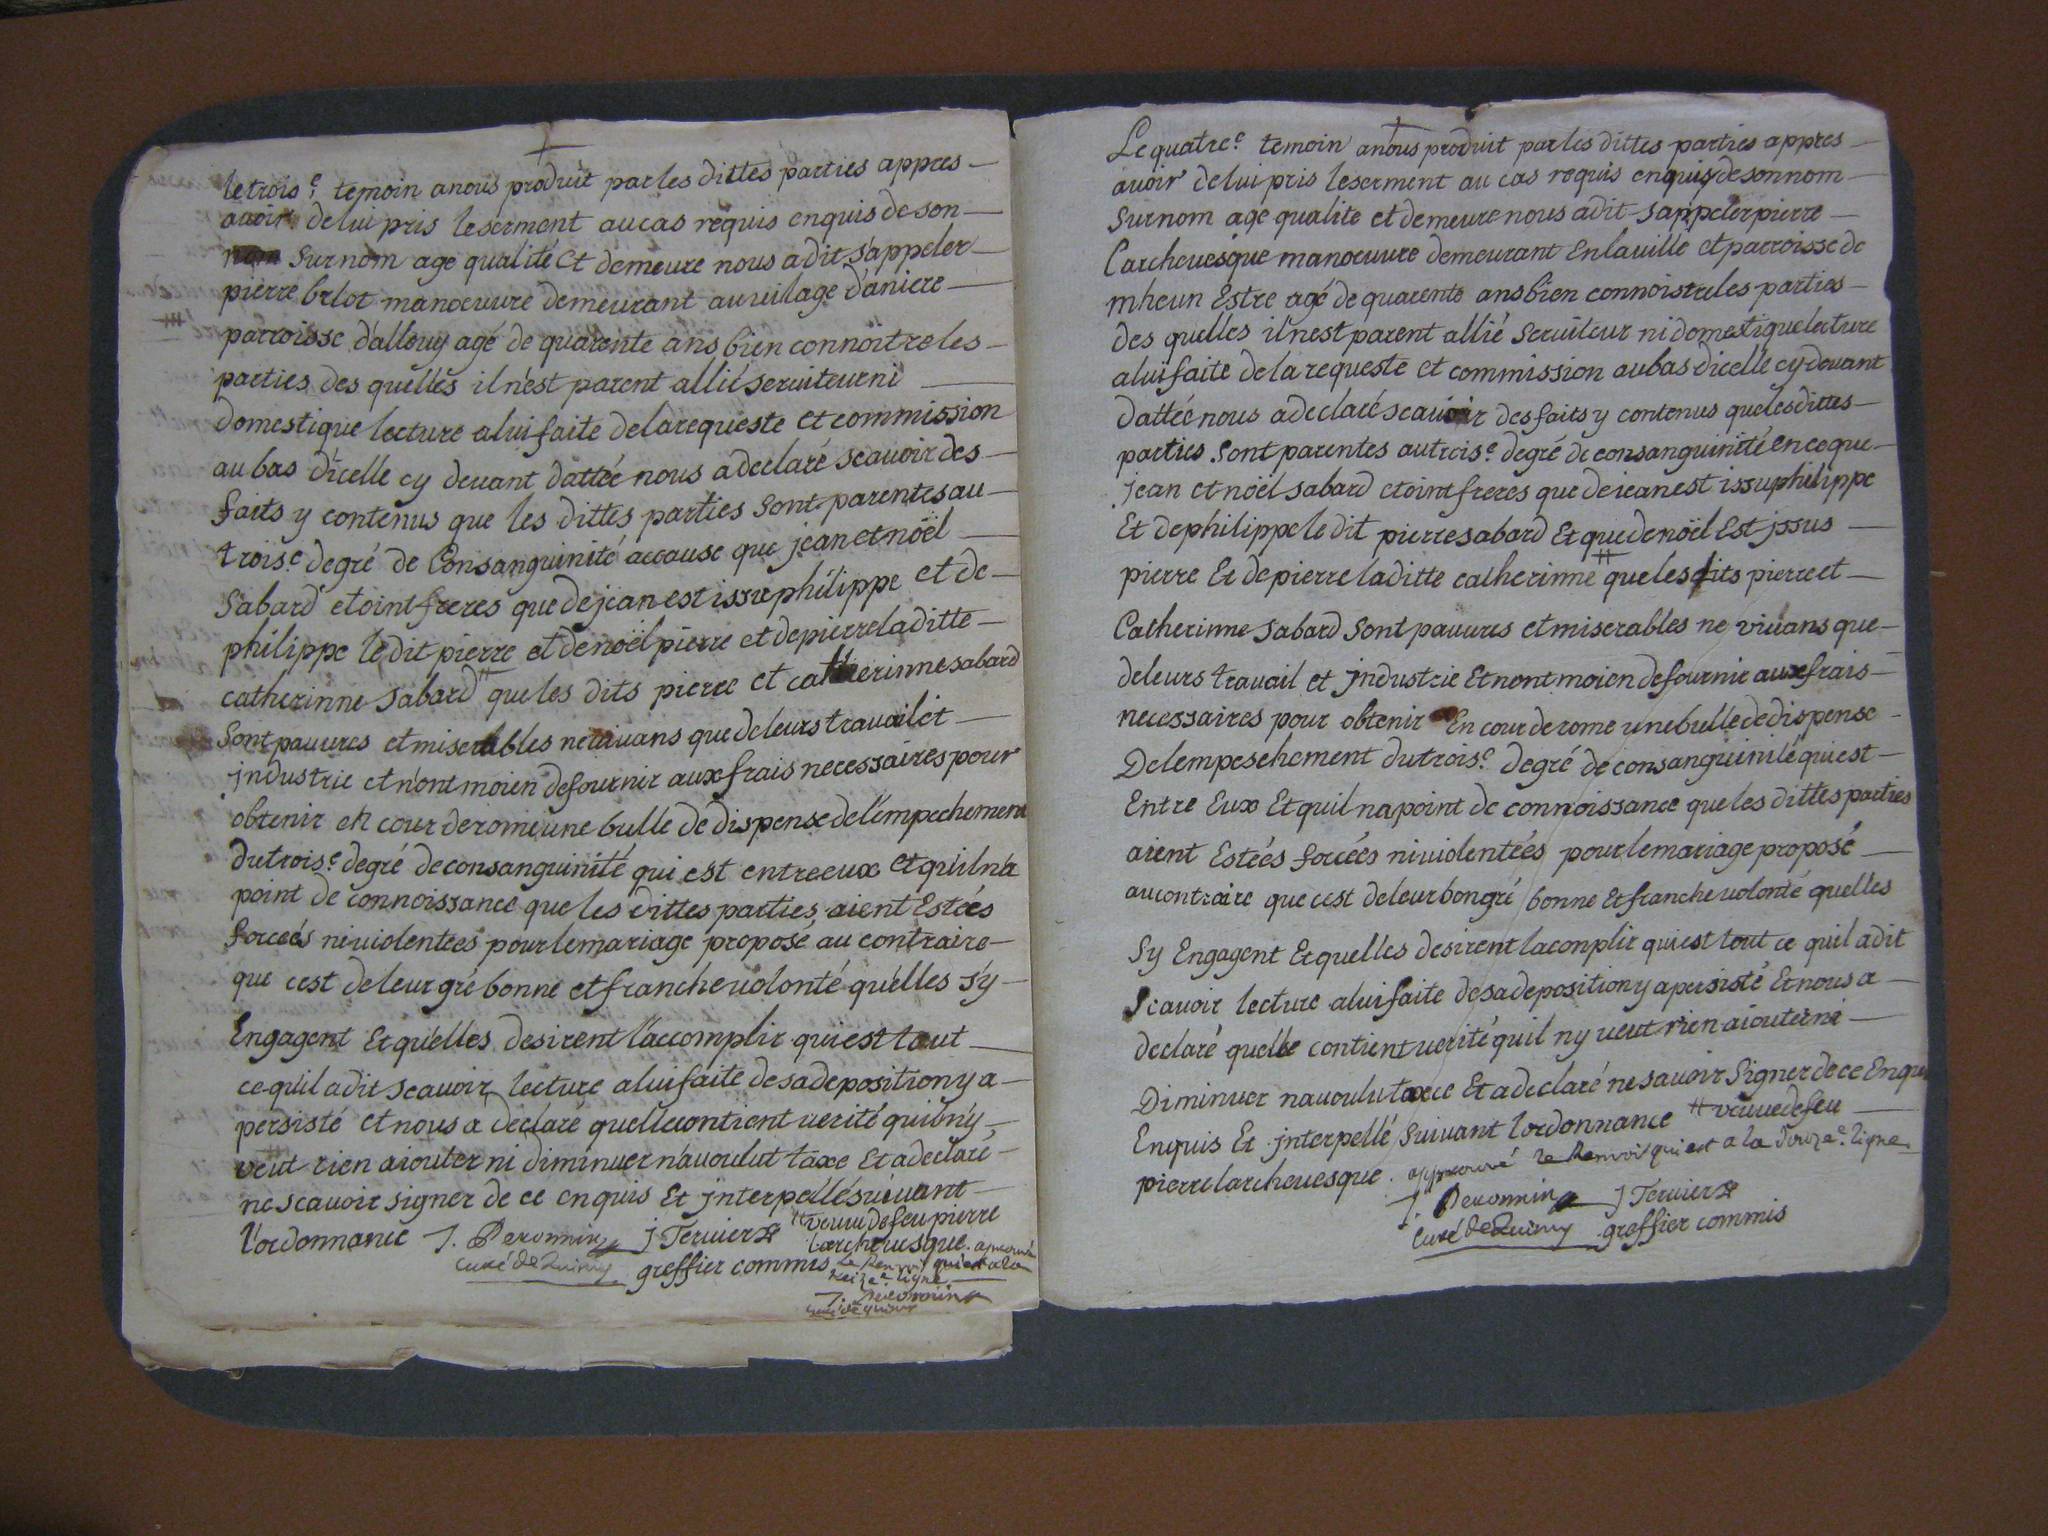 le trois.e temoin a nous produit par les dittes parties appres
avoir de lui pris le serment au cas requis enquis de son
nom Surnom age qualité et demeure nous a dit s'appeler
pierre belot manoeuvre demeurant au vilage d'aniere
parroisse d'allouy agé de quarente ans bien connoître les
parties des quelles il n'est parent allié serviteur ni
domestique lecture a lui faite de la requeste et commission
au bas d'icelle cy devant dattée nous a declaré scavoir des
faits y contenus que les dittes parties sont parentes au
trois.e degré de Consanguinité accause que jean et noël
Sabard etoint freres que de jean est issu philippe et de
philippe le dit pierre et de noël pierre et de pierre la ditte
catherinne Sabard # que les dits pierre et catherinne sabard
Sont pauvres et miserables ne vivans que de leurs travail et
jndustrie et n'ont moien de fournir aux frais necessaires pour
obtenir en cour de rome une bulle de dispense de l'empechement
du trois.e degré de consanguinité qui est entre eux et qu'il n'a
point de connoissance que les dittes parties aient Estées
forcées ni violentées pour le mariage proposé au contraire
que cest de leur gré bonne et franche volonté qu'elles s'y
Engagent Et qu'elles desirent l'accomplir qui est tout
ce qu'il a dit scavoir lecture a lui faite de sa deposition y a
persisté et nous a declaré quelle contient verité qu'il n'y
veut rien aiouter ni diminuer n'a voulut taxe Et a declaré
ne scavoir signer de ce enquis Et jnterpellé suivant
l'ordonnance J. Peronnin j Tervier
curé de Quincy greffier commis
# veuve de feu pierre
larchevesque. aprouvé
le Renvoi qui est a la
treize.e ligne
J. Peronnin
curé de quincy
Le quatre.e temoin a nous produit par les dittes parties appres
avoir de lui pris le serment au cas requis enquis de son nom
Surnom age qualite et demeure nous a dit s'appeler pierre
Larchevesque manoeuvre demeurant En la ville et parroisse de
mheun Estre agé de quarente ans bien connoistre les parties
des quelles il n'est parent allié serviteur ni domestique lecture
a lui faite de la requeste et commission au bas d'icelle cy devant
dattée nous a declaré scavoir des faits y contenus que les dittes
parties Sont parentes au trois.e degré de consanguinité en ce que
jean et noël sabard etoint freres que de iean est issu philippe
Et de philippe le dit pierre sabard Et que de noël Est jssus
pierre Et de pierre la ditte catherinne # que les dits pierre et
Catherinne Sabard Sont pauvres et miserables ne vivans que
de leurs travail et jndustrie Et n'ont moien de fournir aux frais
necessaires pour obtenir En cour de rome une bulle de dispense
De lempeschement du trois.e degré de consanguinité qui est
Entre Eux Et quil na point de connoissance que les dittes parties
aient Estées forcées ni violentées pour le mariage proposé
au contraire que cest de leur bon gré bonne Et franche volonté quelles
Sy Engagent Et quelles desirent lacomplir qui est tout ce quil a dit
Scavoir lecture a lui faite de sa deposition y a persisté Et nous a
declaré quelle contient verité quil ny veut rien aiouter ni
Diminuer na voulu taxe Et a declaré ne savoir Signer de ce Enquis
Enquis Et jnterpellé Suivant lordonnance # veuve de feu
pierre larchevesque. approuvé le Renvoi qui est a la douze.e ligne
J. Peronnin j Tervier
curé de Quincy greffier commis